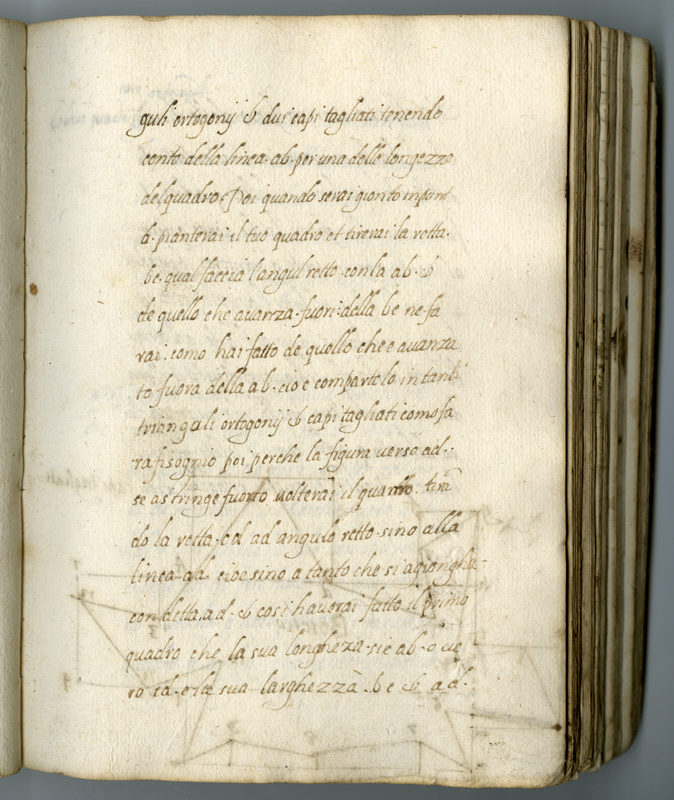 guli ortogonij & dui capi tagliati tenendo
conto della linea .ab. per una delle longezze
del quadro. Poi quando serai gionto in pont
b. pianterai il tuo quadro et tirerai la retta.
be. qual faccia l'angul retto con la ab. &
de quello che auanza fuori della be ne fa
rai. como hai fatto de quello che e auanza
to fuora della ab. cio e compartelo in tanti
trianguli ortogonij & capi tagliati como fa
ra bisognio poi perche la figura verso ad.
se astringe fuorto uolterai il quadro. tirā
do la retta. cd ad angulo retto sino alla
linea ad. cioe sino a tanto che si agiongha
con detta. ad. & cosi hauerai fatto il primo
quadro che la sua longheza sie ab. o ue
ro cd. e la sua larghezza. be & ad.